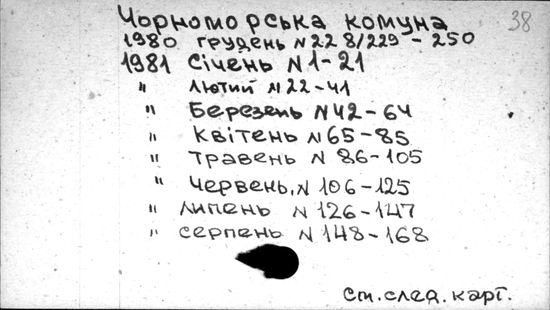 Чорноморська комуна
38
1980 грудень N 228/229 - 250
1981 Січень N 1-21
" Лютий N 22-41
" Березень N 42-64
" Квітень N 65-85
" Травень N 86-105
" Червень, N 106-125
" Липень N 126-147
" серпень N 148-168
См. след. карт.